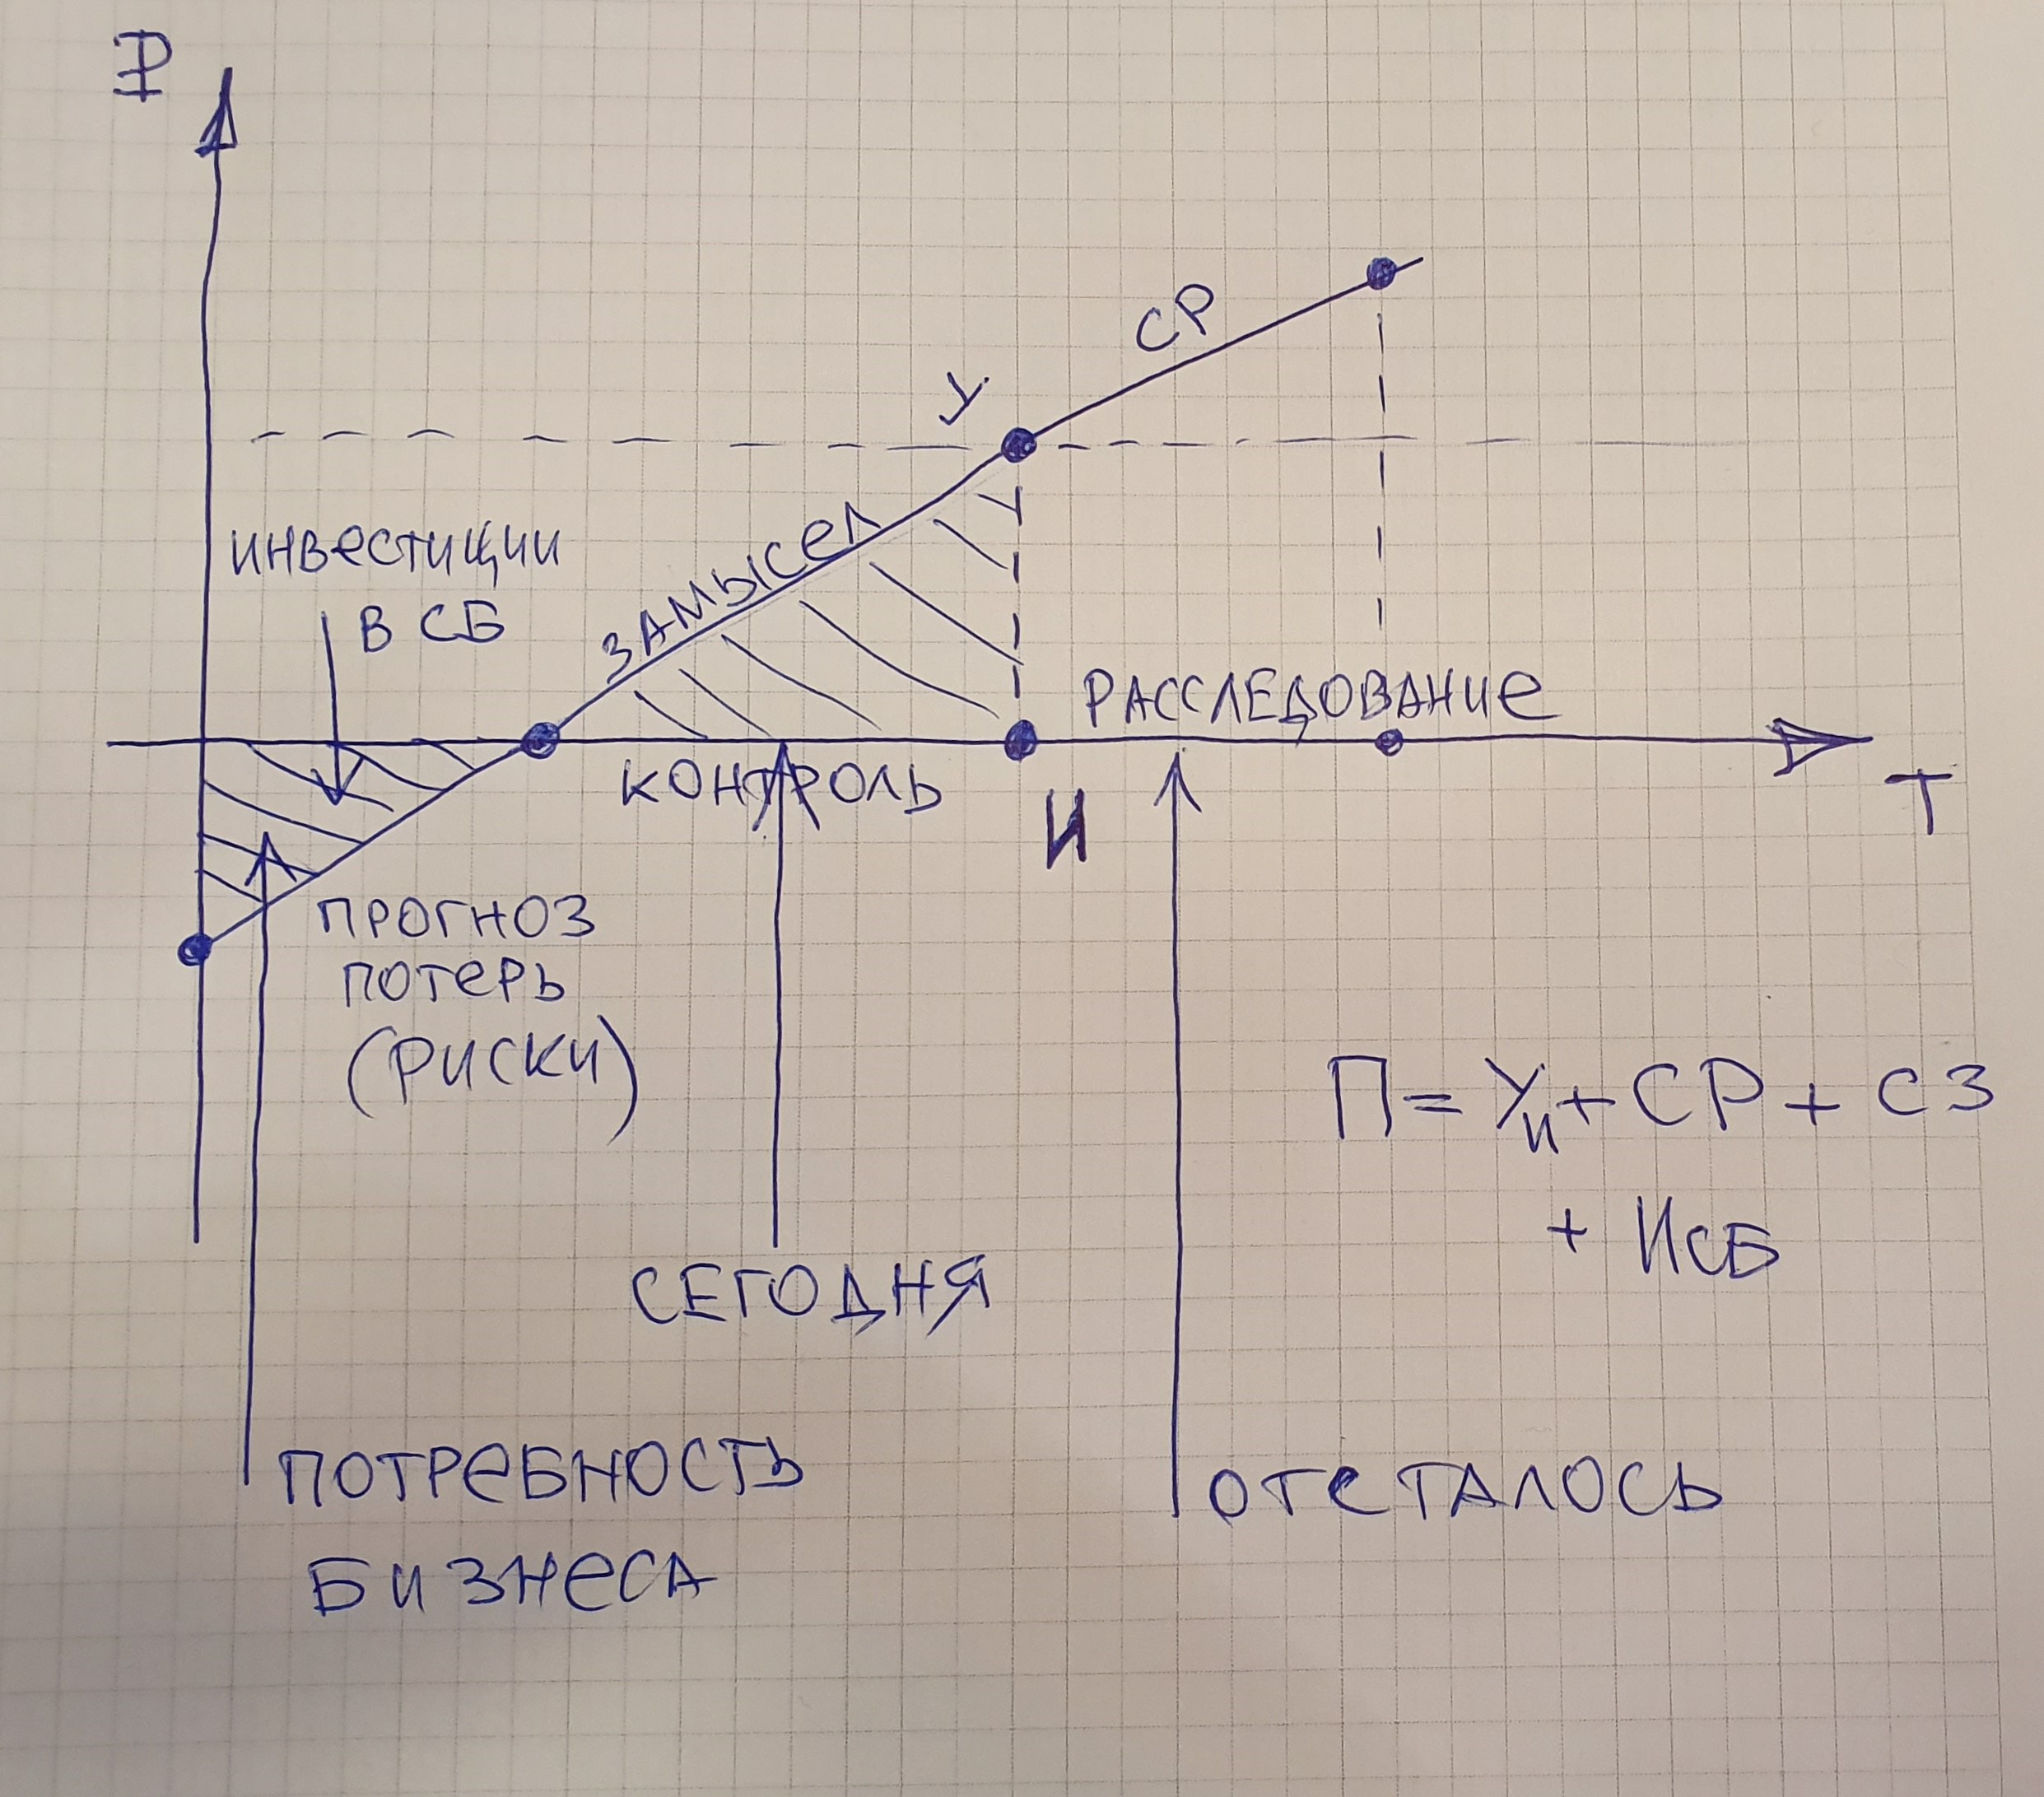 ₽
СР
У.
ИНВеСТИЦИИ
В СБ
ЗАМЫСеЛ
РАССЛЕДОВАНИе
КОНТРОЛЬ
И
Т
ПРОГНОЗ
ПОТеРЬ
(РИСКИ)
П=Уи+СР+СЗ
+ ИСБ
СЕГОДНЯ
ПОТРеБНОСТЬ
БИЗНеСА
ОТСТАЛОСЬ